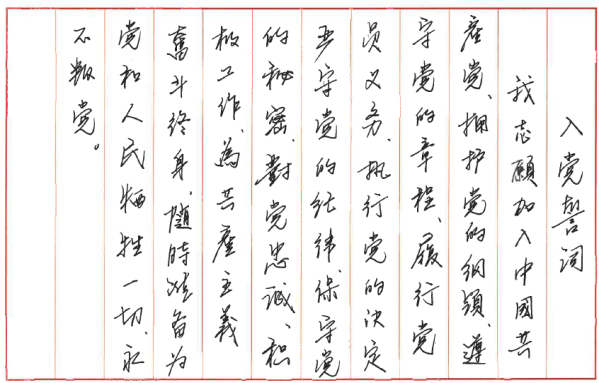 入党誓词
我志願加入中國共
產党、拥护党的纲領、遵
守党的章程、履行党
员义务、执行党的决定
严守党的纪律、保守党
的秘密、對党忠诚、积
极工作、為共產主義
奮斗终身、随時準备为
党和人民牺牲一切、永
不叛党。